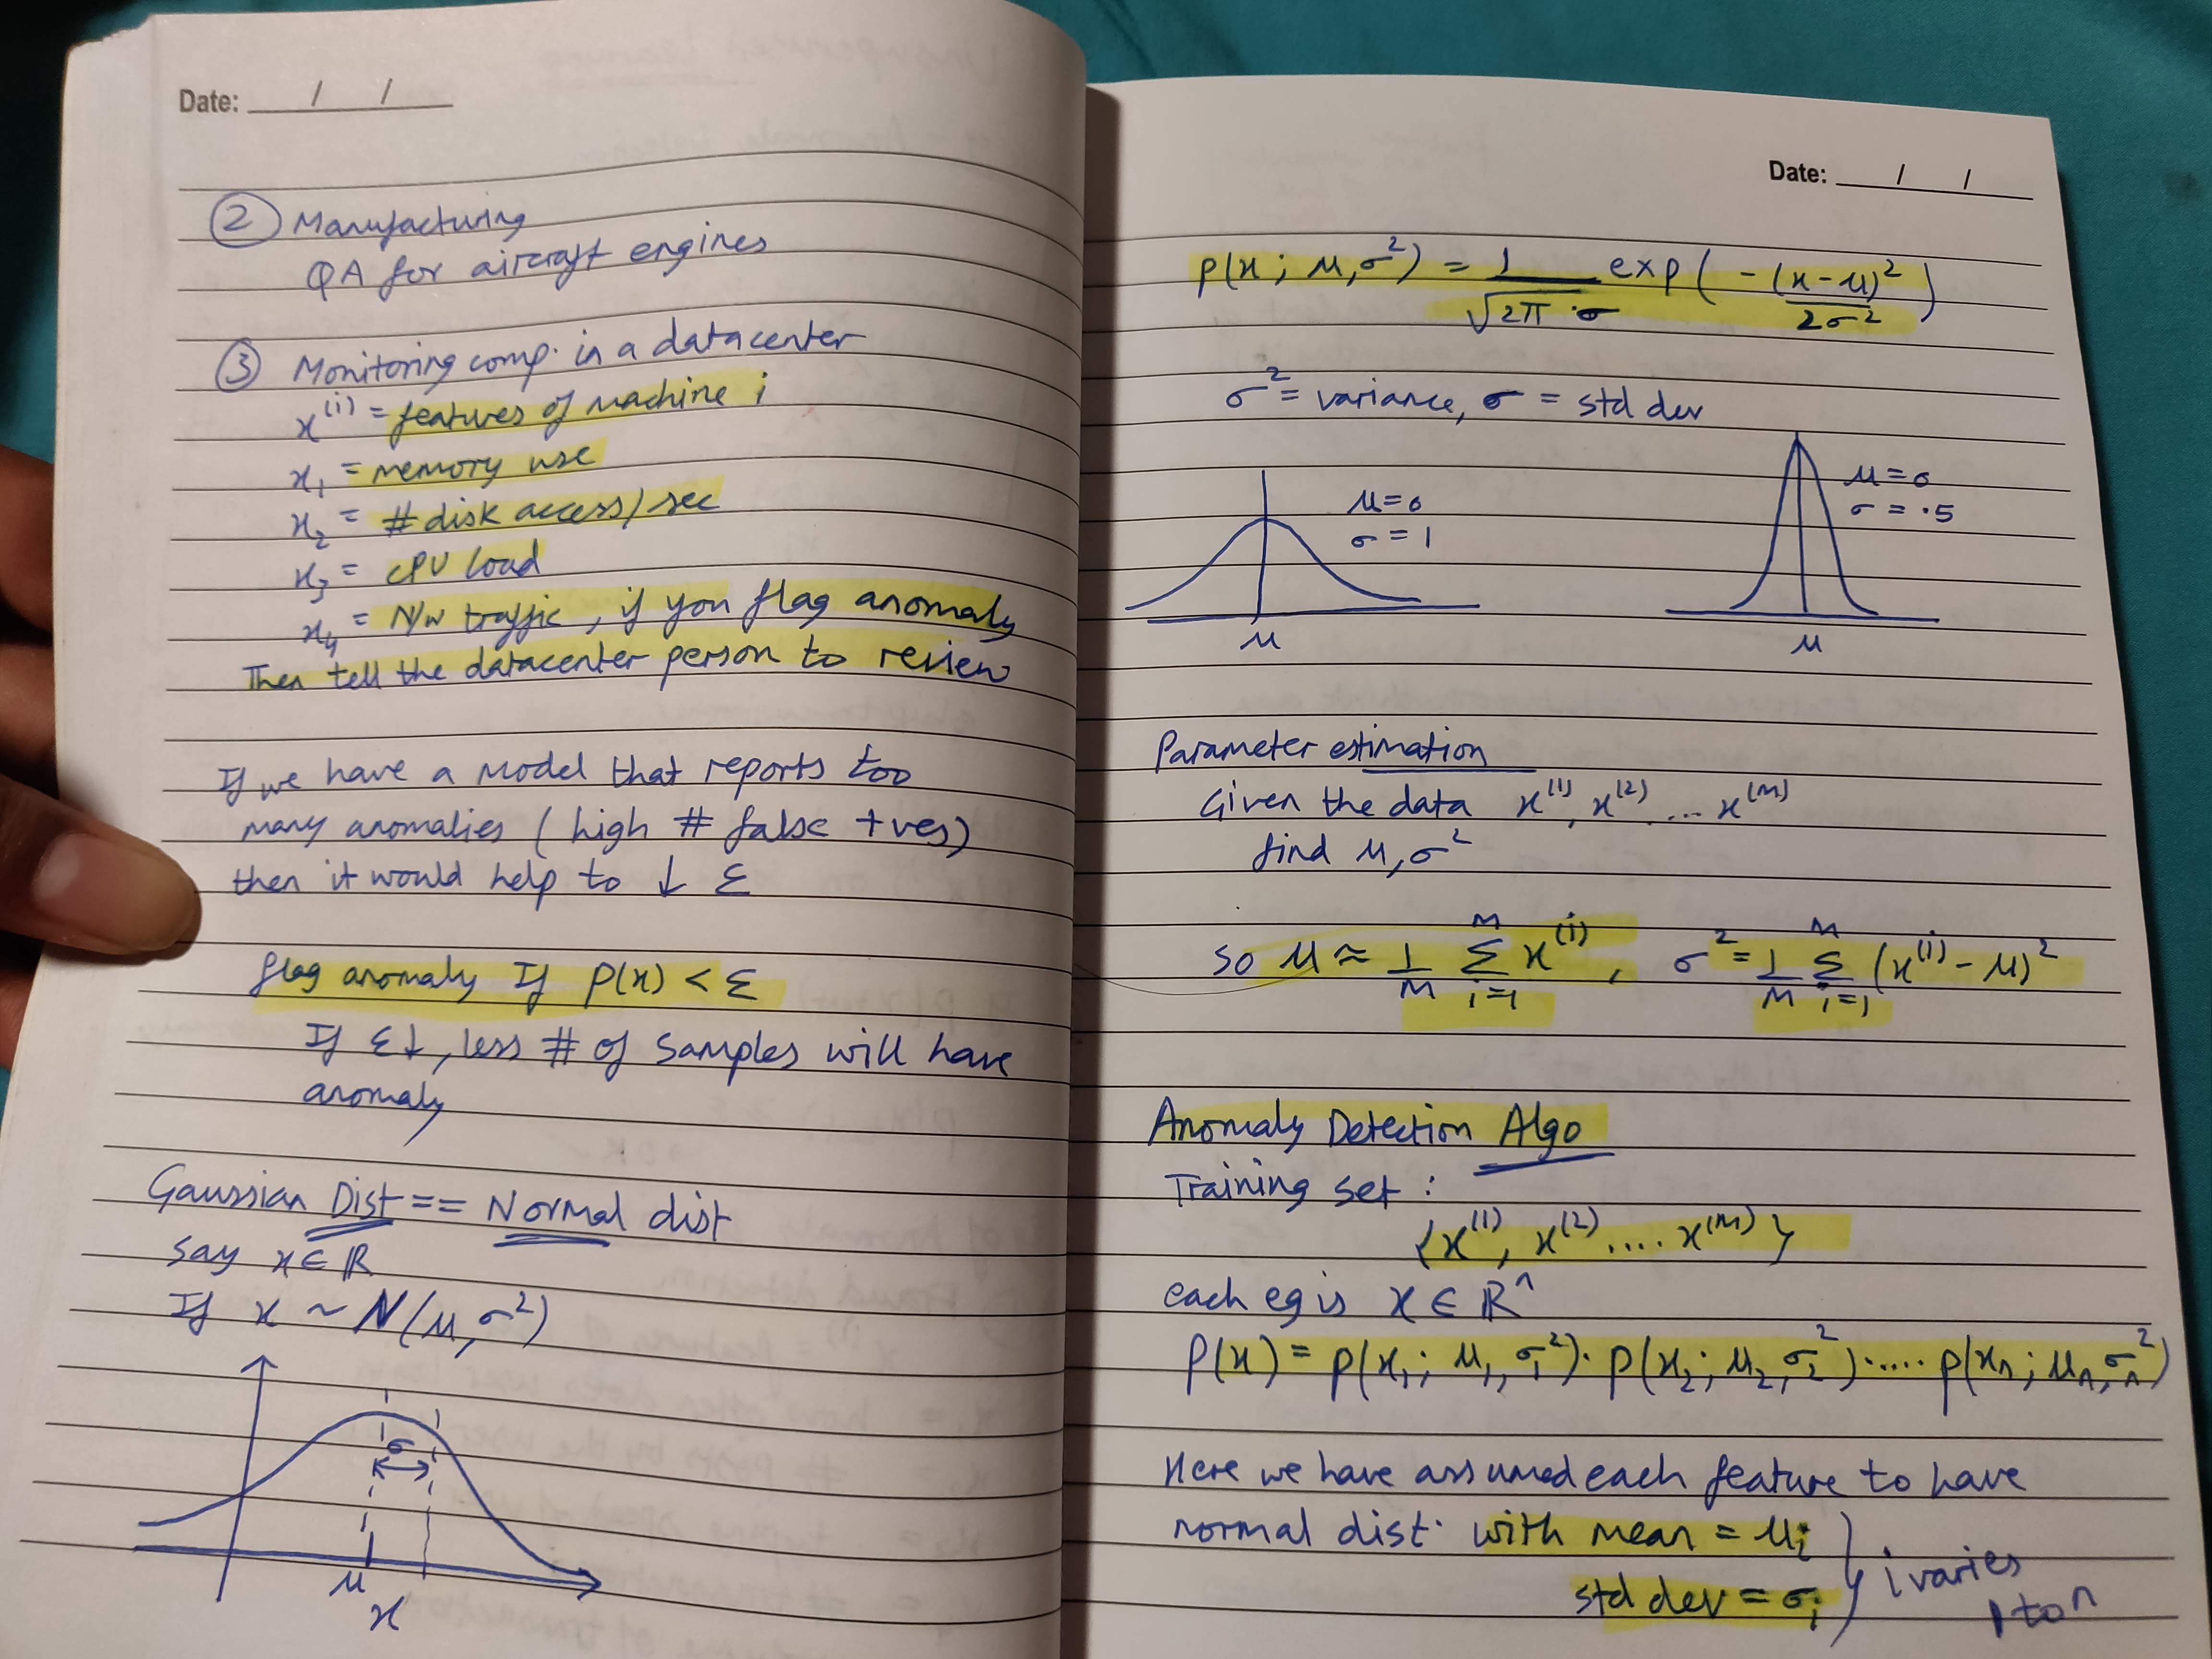 Date: / /
② Manufacturing
QA for aircraft engines
③ Monitoring comp. in a datacenter
x⁽ⁱ⁾ = features of machine i
x₁ = memory use
x₂ = # disk access/sec
x₃ = CPU load
x₄ = N/w traffic, if you flag anomaly
Then tell the datacenter person to review
If we have a model that reports too
many anomalies (high # false +ves)
then it would help to ↓ ε
flag anomaly If p(x) < ε
If ε↓, less # of samples will have
anomaly
Gaussian Dist == Normal dist
say x ∈ ℝ
If x ~ N(μ, σ²)
σ
μ
x
Date: / /
p(x; μ, σ²) = 1/(√2π · σ) exp(-(x-μ)²/2σ²)
σ² = variance, σ = std dev
μ=0
σ = 1
μ
μ=0
σ = .5
μ
Parameter estimation
Given the data x⁽¹⁾, x⁽²⁾ .... x⁽ᴹ⁾
find μ, σ²
so μ ≈ 1/M Σᵢ₌₁ᴹ x⁽ⁱ⁾, σ² = 1/M Σᵢ₌₁ᴹ (x⁽ⁱ⁾ - μ)²
Anomaly Detection Algo
Training set :
{x⁽¹⁾, x⁽²⁾ .... x⁽ᴹ⁾}
each eg is x ∈ ℝⁿ
p(x) = p(x₁; μ₁, σ₁²). p(x₂; μ₂, σ₂²)..... p(xₙ; μₙ, σₙ²)
Here we have assumed each feature to have
normal dist. with mean = μᵢ
std dev = σᵢ } i varies
1 to n